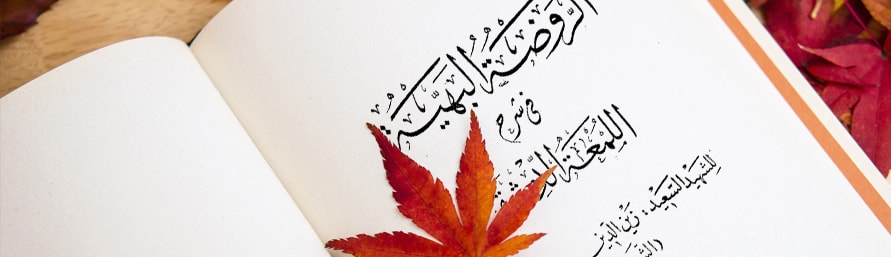 الرَّوْضَةُ الْبَهِيَّة
فى شرح
اللُّمعَة
للشهيد السعيد: زين الدين